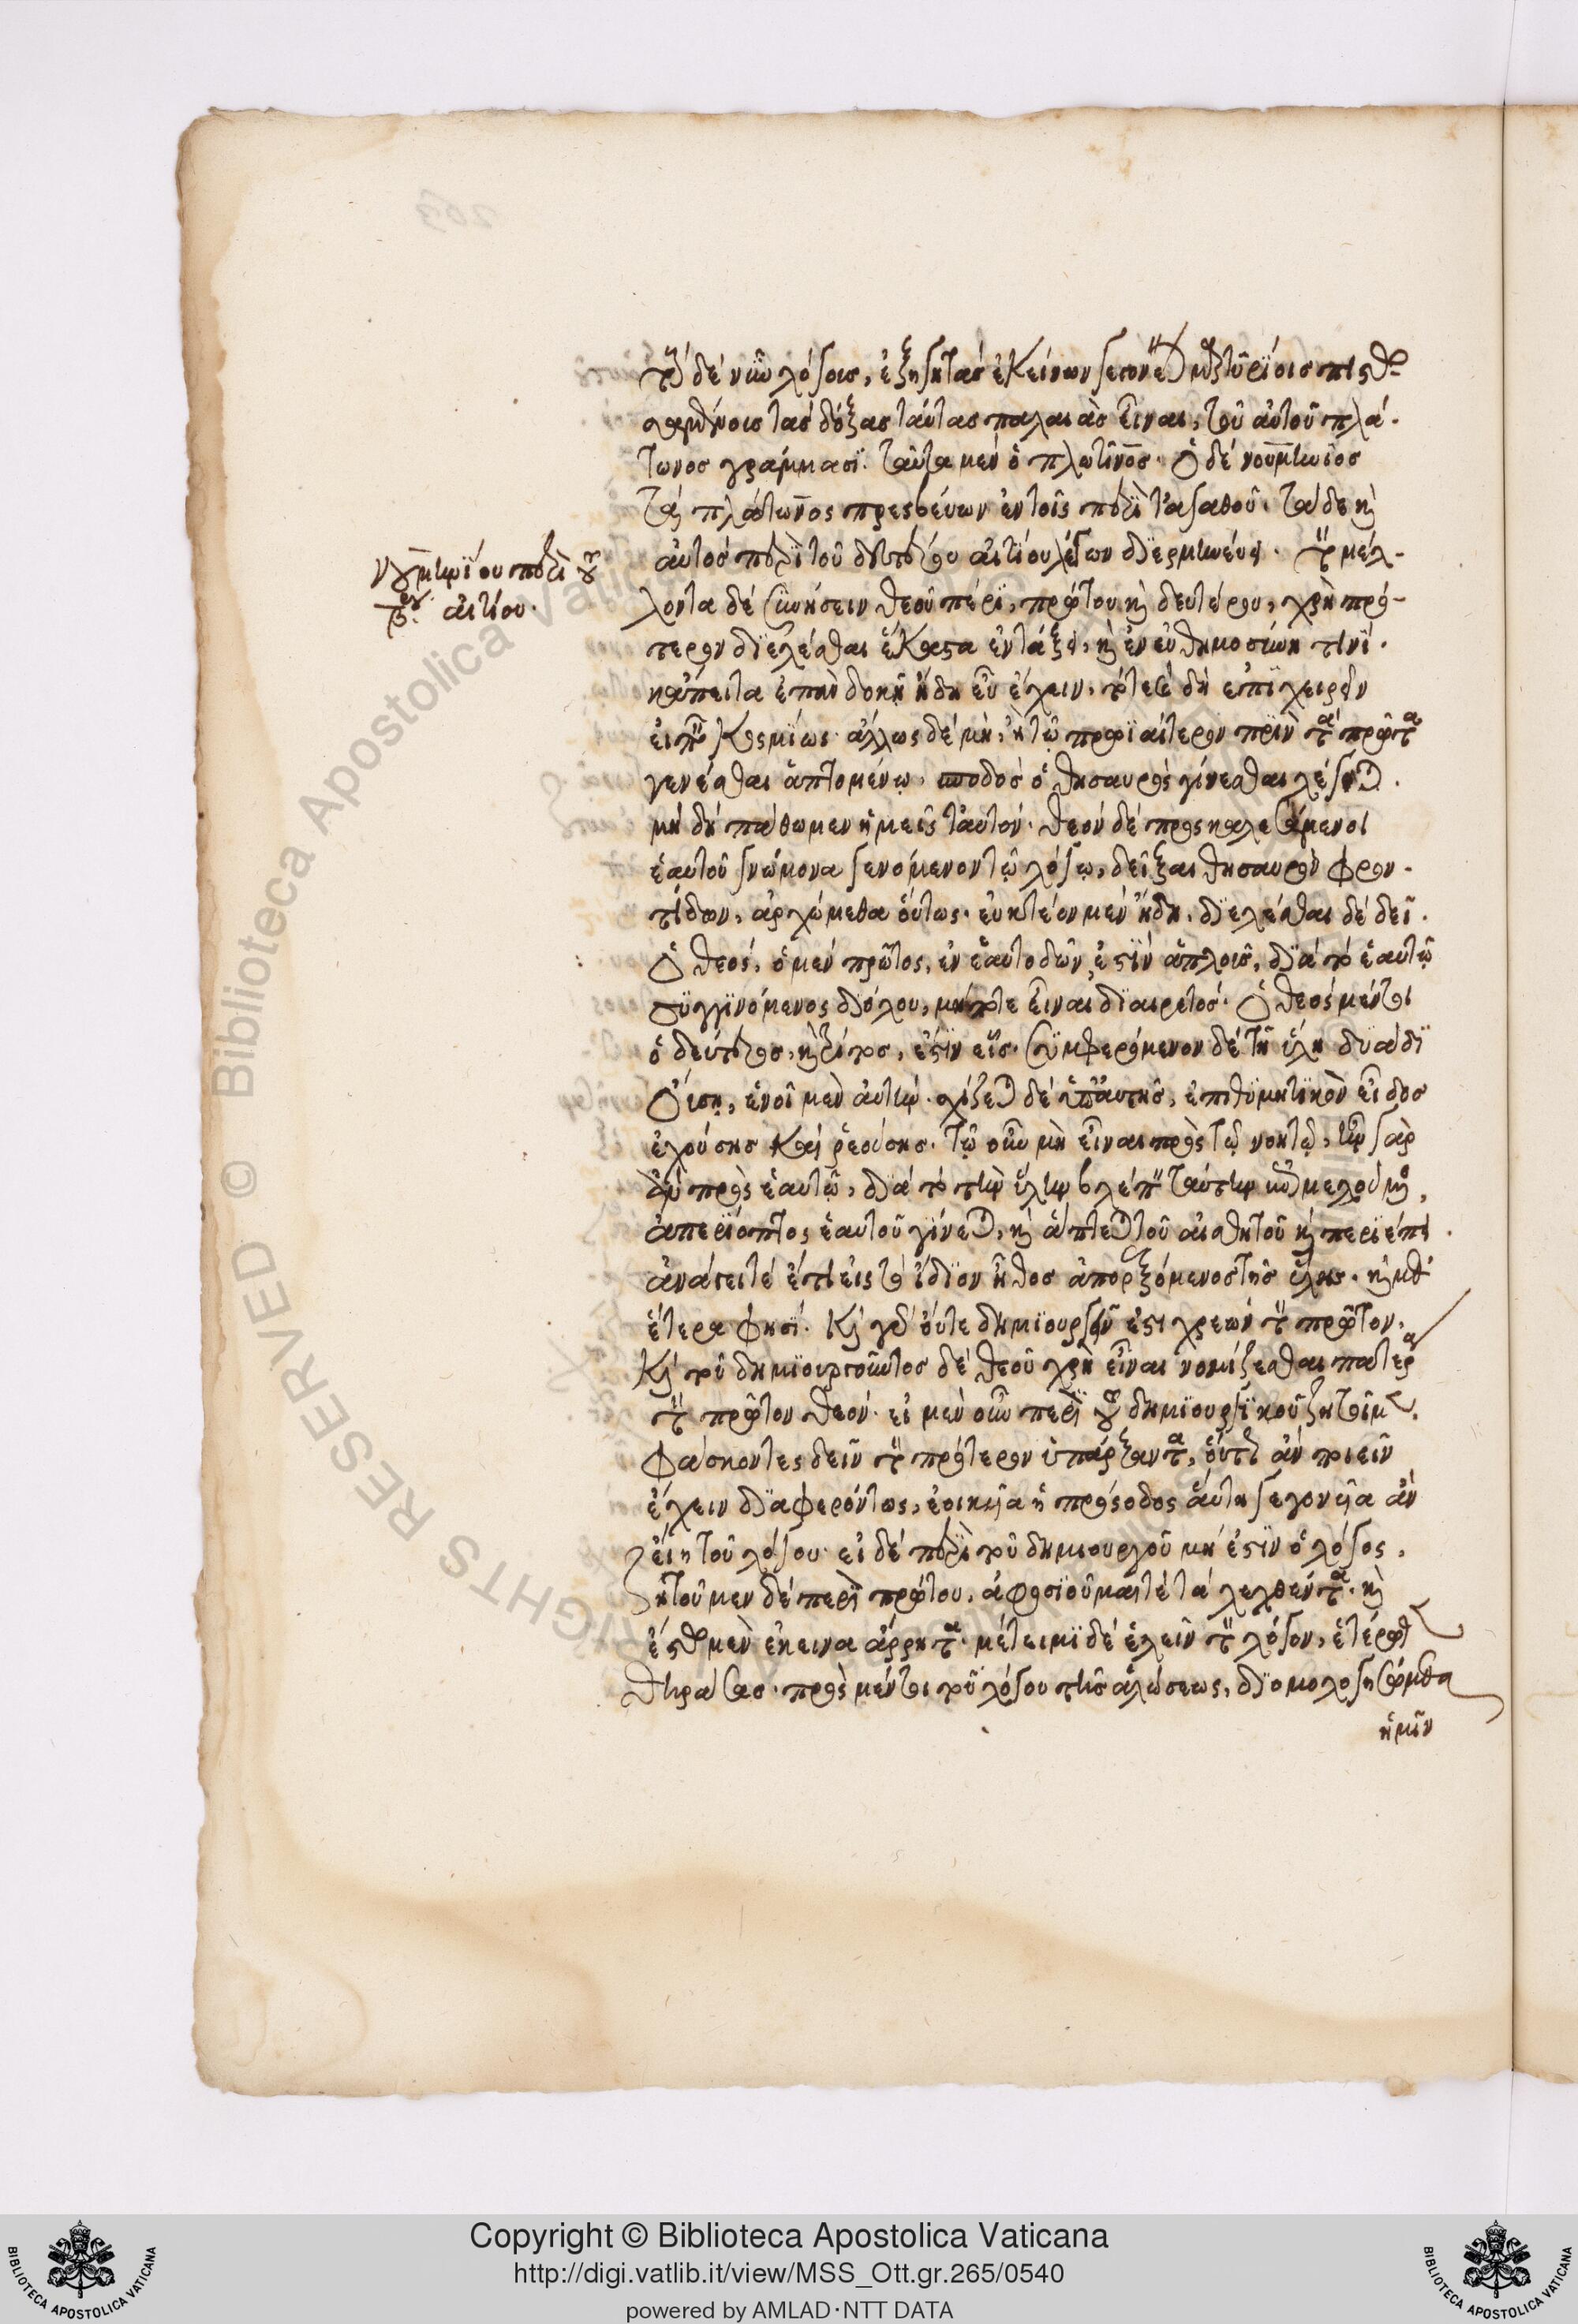 τοὺς δὲ νῦν λόγους, ἐξηγητὰς ἐκείνων γεγονέναι μαρτυρίοις πιστω-
σαμένοις τὰς δόξας ταύτας παλαιὰς εἶναι, τοῦ αὐτοῦ πλά-
τωνος γράμμασι. ταῦτα μὲν ὁ πλωτῖνος. ὁ δὲ νουμήνιος
τὰ πλάτωνος πρεσβεύων ἐν τοῖς περὶ τἀγαθοῦ. τάδε καὶ
αὐτὸς περὶ τοῦ δευτέρου αἰτίου λέγων διερμηνεύει. τὸν μέλ-
λοντα δὲ συνήσειν θεοῦ πέρι, πρώτου καὶ δευτέρου, χρὴ πρό-
τερον διελέσθαι ἕκαστα ἐν τάξει, καὶ ἐν εὐθημοσύνῃ τινί.
κἄπειτα ἐπὴν δοκῇ ἤδη εὖ ἔχειν, τότε δὴ ἐπιχειρεῖν
εἰπεῖν κοσμίως. ἄλλως δὲ μὴ, ἢ τῷ πρωϊαίτερον πρὶν τὰ πρῶτα
γενέσθαι ἁπτομένῳ, σποδὸς ὁ θησαυρὸς γίνεσθαι λέγεται.
μὴ δὴ πάθωμεν ἡμεῖς ταυτόν. θεὸν δὲ προσκαλεσάμενοι
ἑαυτοῦ γνώμονα γενόμενον τῷ λόγῳ, δεῖξαι θησαυρὸν φρον-
τίδων, ἀρχώμεθα οὕτως. εὐκτέον μὲν ἤδη, διελέσθαι δὲ δεῖ.
ὁ θεὸς, ὁ μὲν πρῶτος, ἐν ἑαυτῷ ὢν, ἐστὶν ἁπλοῦς, διὰ τὸ ἑαυτῷ
συγγινόμενος διόλου, μήποτε εἶναι διαιρετός. ὁ θεὸς μέντοι
ὁ δεύτερος, καὶ τρίτος, ἐστὶν εἷς. συμφερόμενον δὲ τῇ ὕλῃ δυάδι
οὔσῃ, ἑνοῖ μὲν αὐτὴν. σχίζεται δὲ ὑπ' αὐτῆς, ἐπιθυμητικὸν εἶδος
ἐχούσης καὶ ῥεούσης. τῷ οὖν μὴ εἶναι πρὸς τῷ νοητῷ, ἦν γὰρ
ἂν πρὸς ἑαυτῷ, διὰ τὸ τὴν ὕλην βλέπειν ταύτην
ἀπερίοπτος ἑαυτοῦ γίνεται, καὶ ἅπτεται τοῦ αἰσθητοῦ καὶ περιέπει.
ἀνάγει τέ ἔτι εἰς τὸ ἴδιον ἦθος ἀπορεξάμενος τῆς ὕλης. καὶ μεθ'
ἕτερα φησί. καὶ γὰρ οὔτε δημιουργεῖν ἐστι χρεὼν τὸν πρῶτον,
καὶ τοῦ δημιουργοῦντος δὲ θεοῦ χρὴ εἶναι νομίζεσθαι πατέρα
τὸν πρῶτον θεόν. εἰ μὲν οὖν περὶ τοῦ δημιουργικοῦ ζητοῖμεν.
φάσκοντες δεῖν τὸν πρότερον ὑπάρξαντα, οὕτως ἂν ποιεῖν
ἔχειν διαφερόντως, ἐοικυῖα ἡ πρόσοδος αὕτη γεγονυῖα ἂν
εἴη τοῦ λόγου. εἰ δὲ περὶ τοῦ δημιουργοῦ μή ἐστιν ὁ λόγος,
ζητοῦμεν δὲ περὶ πρώτου, ἀφοσιοῦμαί τε τὰ λεχθέντα. καὶ
ἔστω μὲν ἐκεῖνα ἄρρητα. μέτειμι δὲ ἑλεῖν τὸν λόγον, ἑτέρωθεν
θηράσας. πρὸς μέντοι τοῦ λόγου τῆς ἁλώσεως, διομολογησώμεθα
ἡμῖν
νουμηνίου περὶ τοῦ
βου αἰτίου.
Copyright © Biblioteca Apostolica Vaticana
http://digi.vatlib.it/view/MSS_Ott.gr.265/0540
powered by AMLAD·NTT DATA